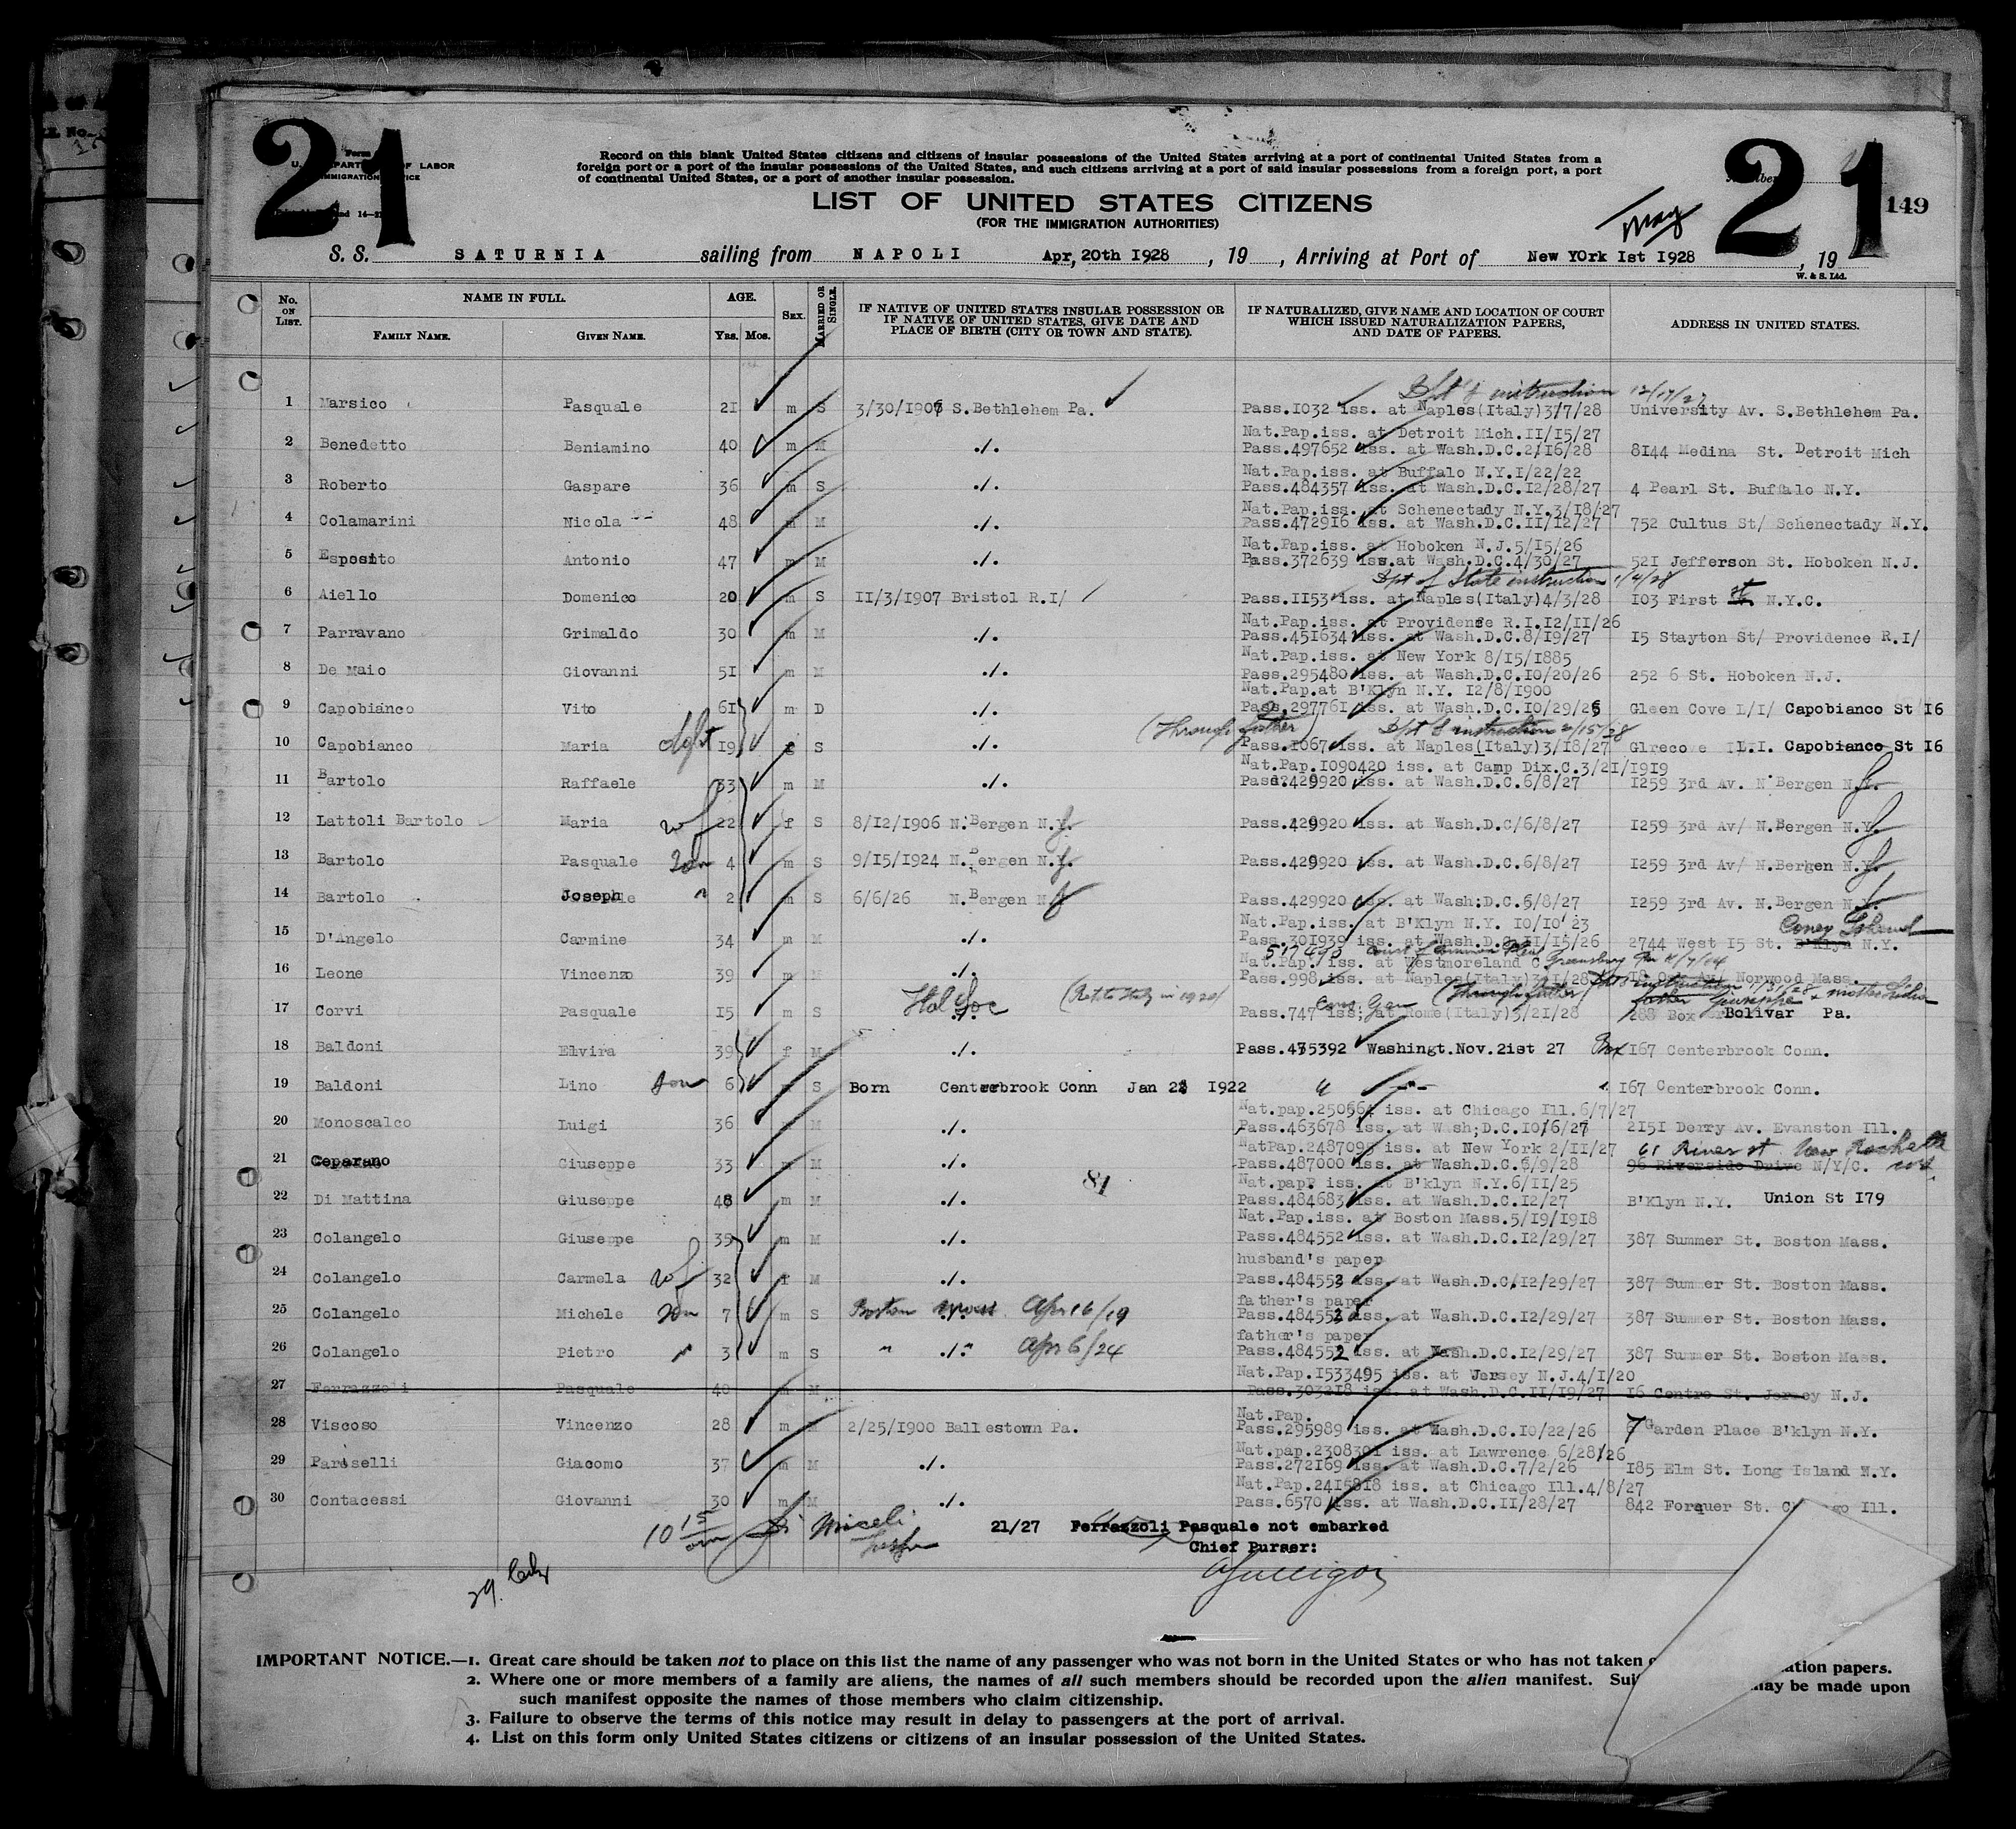 21
Form
U. S. DEPARTMENT OF LABOR
IMMIGRATION SERVICE
Record on this blank United States citizens and citizens of insular possessions of the United States arriving at a port of continental United States from a
foreign port or a port of the insular possessions of the United States, and such citizens arriving at a port of said insular possessions from a foreign port, a port
of continental United States, or a port of another insular possession.
LIST OF UNITED STATES CITIZENS
(FOR THE IMMIGRATION AUTHORITIES)
21
149
May
S. S. SATURNIA sailing from NAPOLI Apr, 20th 1928, 19 , Arriving at Port of New York 1st 1928, 19
W. & S. Ltd.
No. ON LIST. NAME IN FULL. FAMILY NAME. GIVEN NAME. AGE. YRS. MOS. SEX. MARRIED OR SINGLE.
IF NATIVE OF UNITED STATES INSULAR POSSESSION OR IF NATIVE OF UNITED STATES, GIVE DATE AND PLACE OF BIRTH (CITY OR TOWN AND STATE).
IF NATURALIZED, GIVE NAME AND LOCATION OF COURT WHICH ISSUED NATURALIZATION PAPERS, AND DATE OF PAPERS.
ADDRESS IN UNITED STATES.
Dpt of instruction 12/17/27
1 Marsico Pasquale 21 m S 3/30/1907 S.Bethlehem Pa. Pass.1032 iss. at Naples(Italy)3/7/28 University Av. S.Bethlehem Pa.
Nat.Pap.iss. at Detroit Mich.11/15/27
2 Benedetto Beniamino 40 m M ./. Pass.497652 iss. at Wash.D.C.2/16/28 8144 Medina St. Detroit Mich
Nat.Pap.iss. at Buffalo N.Y.1/22/22
3 Roberto Gaspare 36 m S ./. Pass.484357 iss. at Wash.D.C.12/28/27 4 Pearl St. Buffalo N.Y.
Nat.Pap.iss. at Schenectady N.Y.3/18/27
4 Colamarini Nicola -- 48 m M ./. Pass.472916 iss. at Wash.D.C.11/12/27 752 Cultus St/ Schenectady N.Y.
Nat.Pap.iss. at Hoboken N.J.5/15/26
5 Esposito Antonio 47 m M ./. Pass.372639 iss.at Wash.D.C.4/30/27 521 Jefferson St. Hoboken N.J.
Dpt of State instruction 1/4/28
6 Aiello Domenico 20 m S 11/3/1907 Bristol R.I/ Pass.1153 iss. at Naples(Italy)4/3/28 103 First st N.Y.C.
Nat.Pap.iss. at Providense R.I.12/11/26
7 Parravano Grimaldo 30 m M ./. Pass.451634 iss. at Wash.D.C.8/19/27 15 Stayton St/ Providence R.I/
Nat.Pap.iss. at New York 8/15/1885
8 De Maio Giovanni 51 m M ./. Pass.295480 iss. at Wash.D.C.10/20/26 252 6 St. Hoboken N.J.
Nat.Pap.at B'Klyn N.Y. 12/8/1900
9 Capobianco Vito 61 m D ./. Pass.297761 iss. at Wash.D.C.10/29/26 Gleen Cove L/I/ Capobianco St 16
(Through father) Dpt of instruction 2/15/28
10 Capobianco Maria dght 19 f S ./. Pass.1067 iss. at Naples(Italy)3/18/27 L.I. Capobianco St 16
Nat.Pap.1090420 iss. at Camp Dix.C.3/21/1919
11 Bartolo Raffaele 33 m M ./. Pass.429920 iss. at Wash.D.C.6/8/27 1259 3rd Av. N Bergen N.J.
12 Lattoli Bartolo Maria wf 22 f S 8/12/1906 N.Bergen N.J. Pass.429920 iss. at Wash.D.C/6/8/27 1259 3rd Av/ N.Bergen N.J.
13 Bartolo Pasquale son 4 m S 9/15/1924 N.Bergen N.J. Pass.429920 iss. at Wash.D.C.6/8/27 1259 3rd Av/ N.Bergen N.J.
14 Bartolo Joseph " 2 m S 6/6/26 N.Bergen NJ Pass.429920 iss. at Wash:D.C.6/8/27 1259 3rd Av. N.Bergen N.J.
Nat.Pap.iss. at B'Klyn N.Y. 10/10 23 Coney Island
15 D'Angelo Carmine 34 m M ./. Pass.301939 iss. at Wash.D.C.11/15/26 2744 West 15 St. B'Klyn N.Y.
517490 Court of Common Pleas Greensburg Pa 4/7/04
Nat.Pap. iss. at Westmoreland C
16 Leone Vincenzo 39 m M ./. Pass.998 iss. at Naples(Italy)3/1/28 18 Oak Av/ Norwood Mass.
Hol Soc (Ret to Italy in 1920) Cons. Gen (Through father) Dpt of instruction 1/31/28 father Giuseppe & mother
17 Corvi Pasquale 15 m S ./. Pass.747 iss; at Rome(Italy)3/21/28 288 Box Bolivar Pa.
18 Baldoni Elvira 39 f M ./. Pass.435392 Washingt.Nov.21st 27 Box 167 Centerbrook Conn.
19 Baldoni Lino son 6 m S Born Centerbrook Conn Jan 23 1922 " -"- " 167 Centerbrook Conn.
Nat.pap.250664 iss. at Chicago Ill.6/7/27
20 Monoscalco Luigi 36 m M ./. Pass.463678 iss. at Wash;D.C.10/6/27 2151 Derry Av. Evanston Ill.
NatPap.2487095 iss. at New York 2/11/27 61 River st New Rochelle
21 Ceparano Giuseppe 33 m M ./. Pass.487000 iss. at Wash.D.C.6/9/28 96 Riverside Drive N/Y/C.
81
Nat.papP iss. at B'klyn N.Y.6/11/25
22 Di Mattina Giuseppe 48 m M ./. Pass.484683 iss. at Wash.D.C.12/27 B'Klyn N.Y. Union St 179
Nat.Pap.iss. at Boston Mass.5/19/1918
23 Colangelo Giuseppe 35 m M ./. Pass.484552 iss. at Wash.D.C.12/29/27 387 Summer St. Boston Mass.
husband's paper
24 Colangelo Carmela wf 32 f M ./. Pass.484552 iss. at Wash.D.C/12/29/27 387 Summer St. Boston Mass.
father's paper
25 Colangelo Michele son 7 m S Boston Mass Apr 16/19 Pass.484552 iss. at Wash.D.C.12/29/27 387 Summer St. Boston Mass.
father's paper
26 Colangelo Pietro " 3 m S " ./. " Apr 6/24 Pass.484552 iss. at Wash.D.C.12/29/27 387 Summer St. Boston Mass.
Nat.Pap.1533495 iss. at Jersey N.J.4/1/20
27 Ferrazzoli Pasquale 40 m M Pass.303218 iss. at Wash.D.C.11/19/27 16 Centre St. Jersey N.J.
Nat.Pap.
28 Viscoso Vincenzo 28 m 2/25/1900 Ballestown Pa. Pass.295989 iss. at Wash.D.C.10/22/26 7 Garden Place B'klyn N.Y.
Nat.pap.2308301 iss. at Lawrence 6/28/26
29 Pariselli Giacomo 37 m M ./. Pass.272169 iss. at Wash.D.C.7/2/26 185 Elm St. Long Island N.Y.
Nat.Pap.2415818 iss. at Chicago Ill.4/8/27
30 Contacessi Giovanni 30 m M ./. Pass.6570 iss. at Wash.D.C.11/28/27 842 Forquer St. Ch go Ill.
10 15 am Miceli Insp
21/27 Ferrazzoli Pasquale not embarked
Chief Purser:
29.
IMPORTANT NOTICE.—1. Great care should be taken not to place on this list the name of any passenger who was not born in the United States or who has not taken ation papers.
2. Where one or more members of a family are aliens, the names of all such members should be recorded upon the alien manifest. may be made upon
such manifest opposite the names of those members who claim citizenship.
3. Failure to observe the terms of this notice may result in delay to passengers at the port of arrival.
4. List on this form only United States citizens or citizens of an insular possession of the United States.